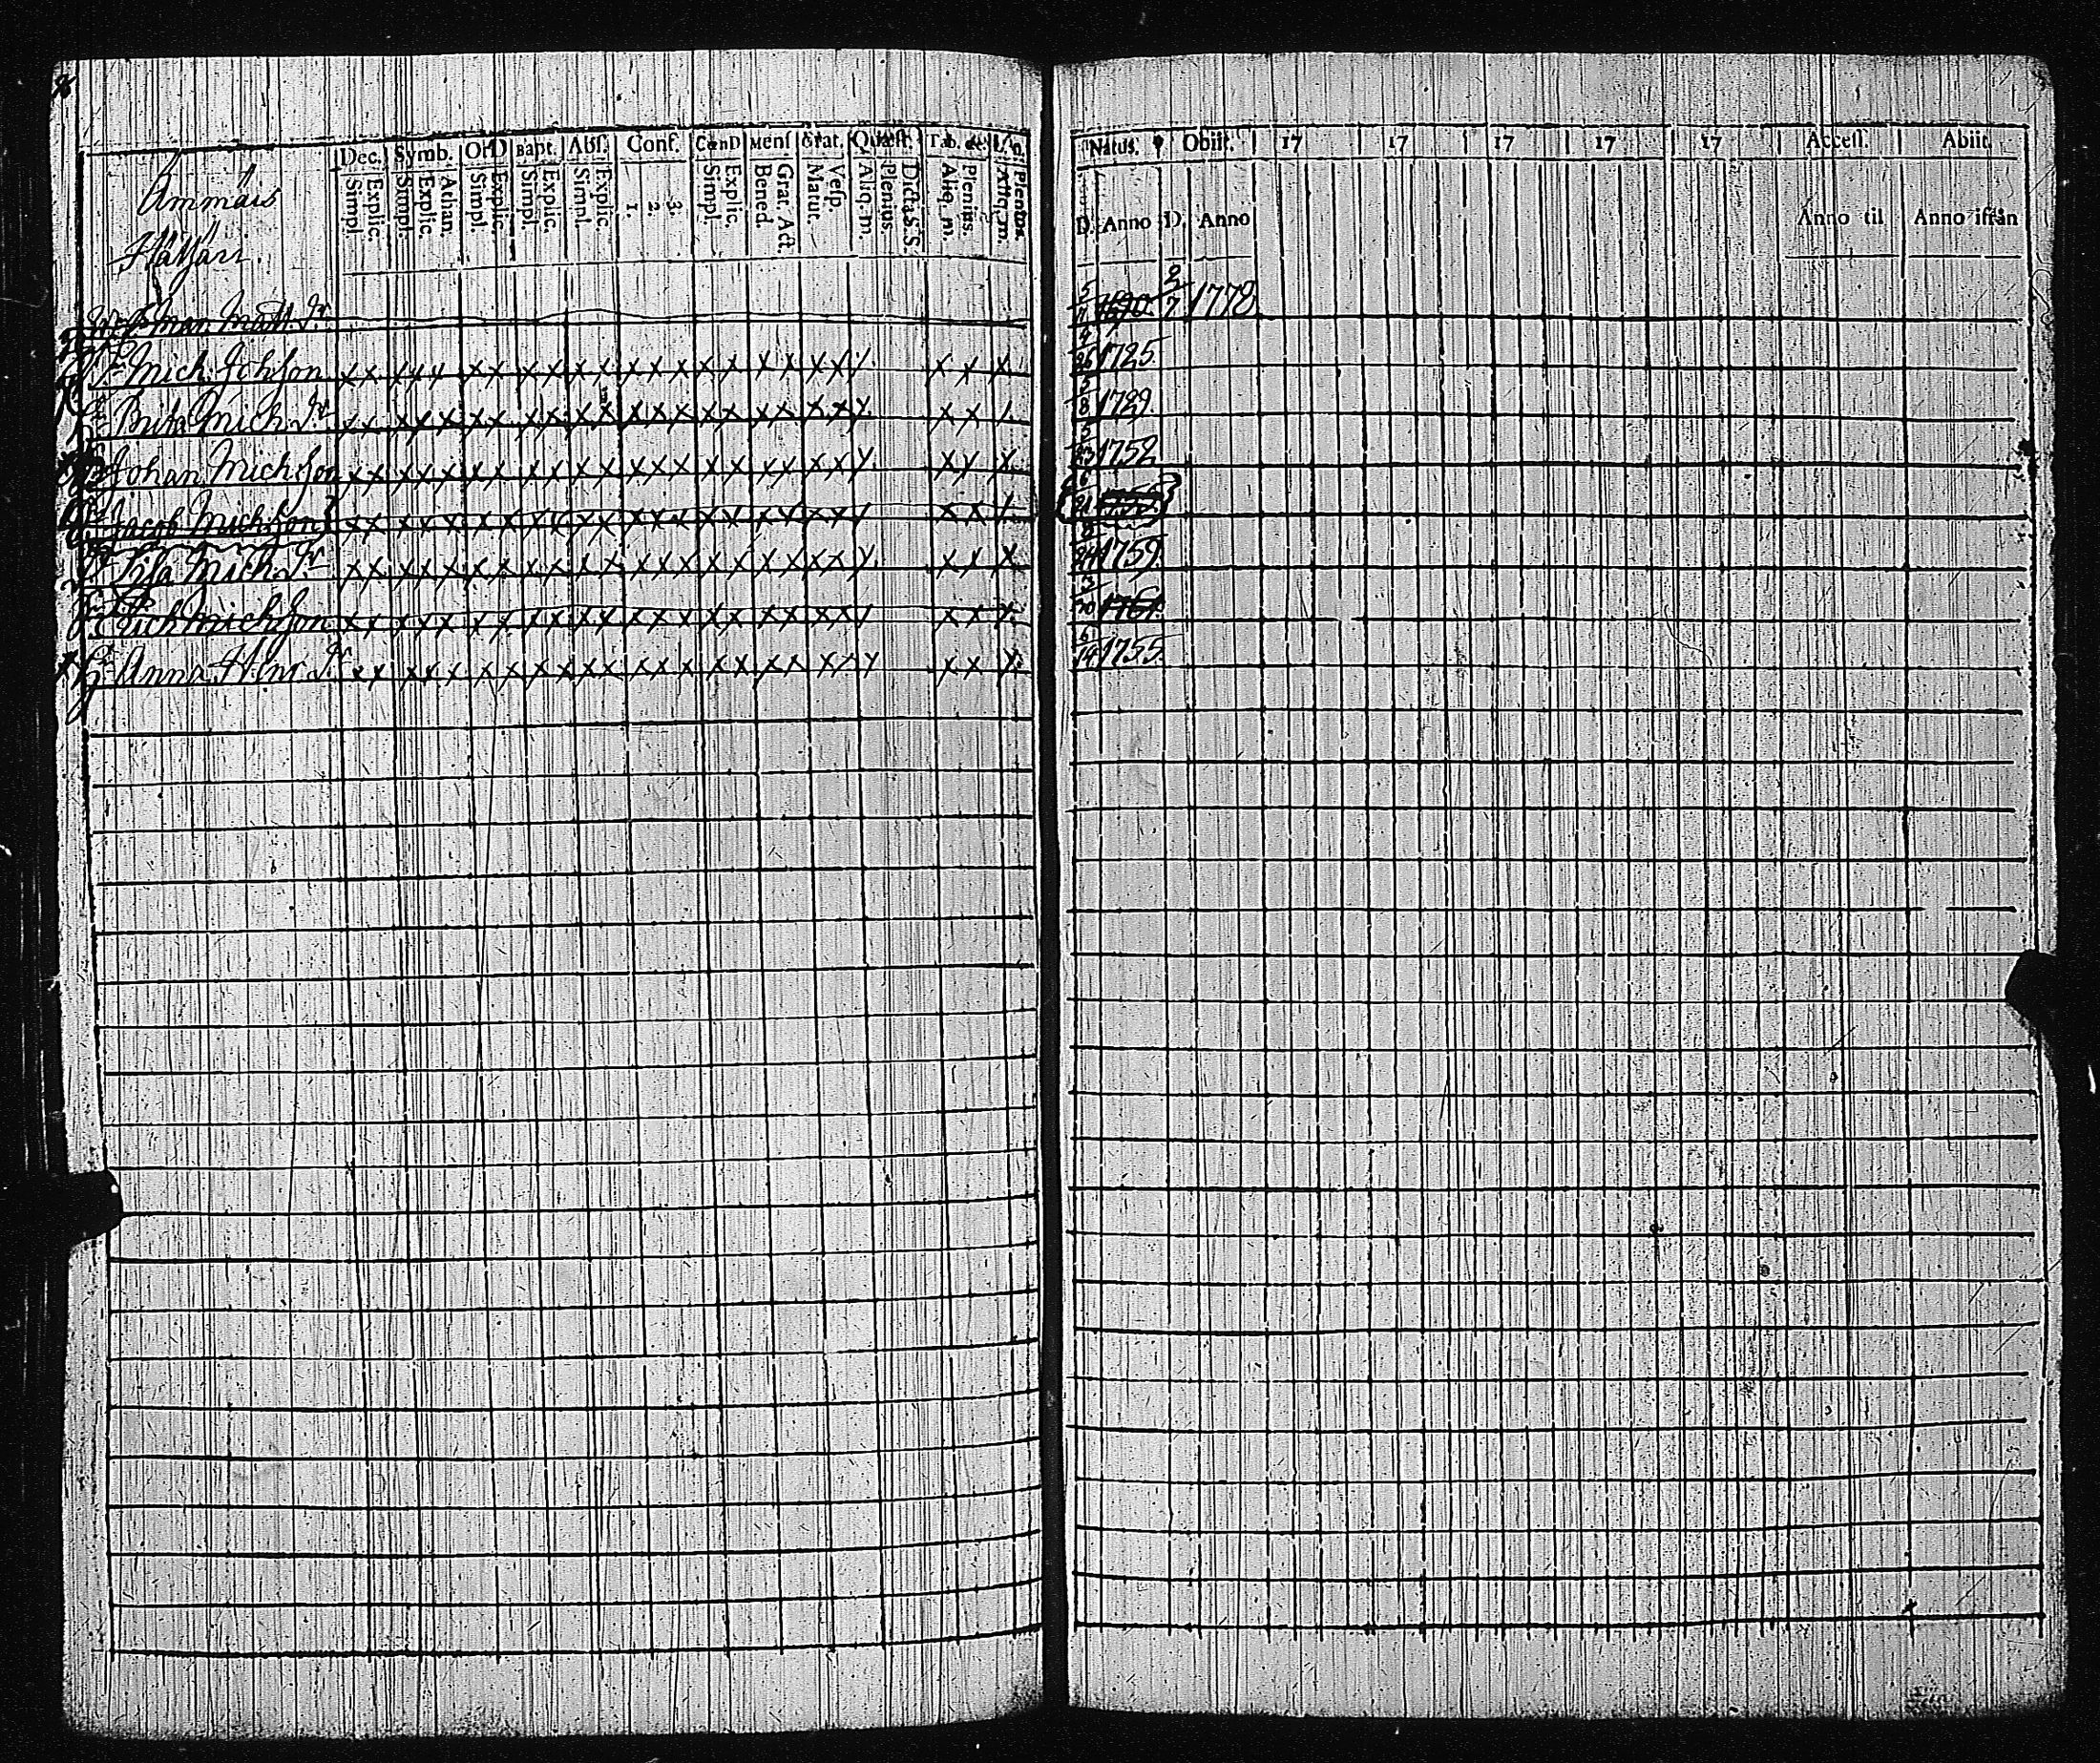 Dec. Symb. OrD Bapt. Abs. Conf. CœnD Mens Grat. Quæst. Tab. œc
Simpl. Explic. Simpl. Explic. Athan. Simpl. Explic. Simpl. Explic. Simpl. Explic. 1. 2. 3. Simpl. Explic. Bened. Grat. Act. Matut. Vesp. Aliq. m. Plenius. Dicta S. S. Aliq. m. Plenius. Aliq. m. Plenius.
Ammais
Hatzari
Natus. Obiit. 17 17 17 17 17 Access. Abiit.
D. Anno D. Anno Anno til Anno ifrån
Matt. Dr 5 1690 2/7 1778
Mich. Johsson x x x x x x x x x x x x x x x x x x x x x x x x x 4/26 1725
Brita Mich. Dr x x x x x x x x x x x x x x x x x x x x x x x x x 5/8 1729
Johan Michsson x x x x x x x x x x x x x x x x x x x x x x x x x 5/23 1752
Jacob Michsson x x x x x x x x x x x x x x x x x x x x x x x x x 6/21
Lisa Mich. Dr x x x x x x x x x x x x x x x x x x x x x x x x x 1759
Erich Michsson x x x x x x x x x x x x x x x x x x x x x x x x x 3/20 1761
Anna Henr. Dr x x x x x x x x x x x x x x x x x x x x x x x x x 6/14 1755